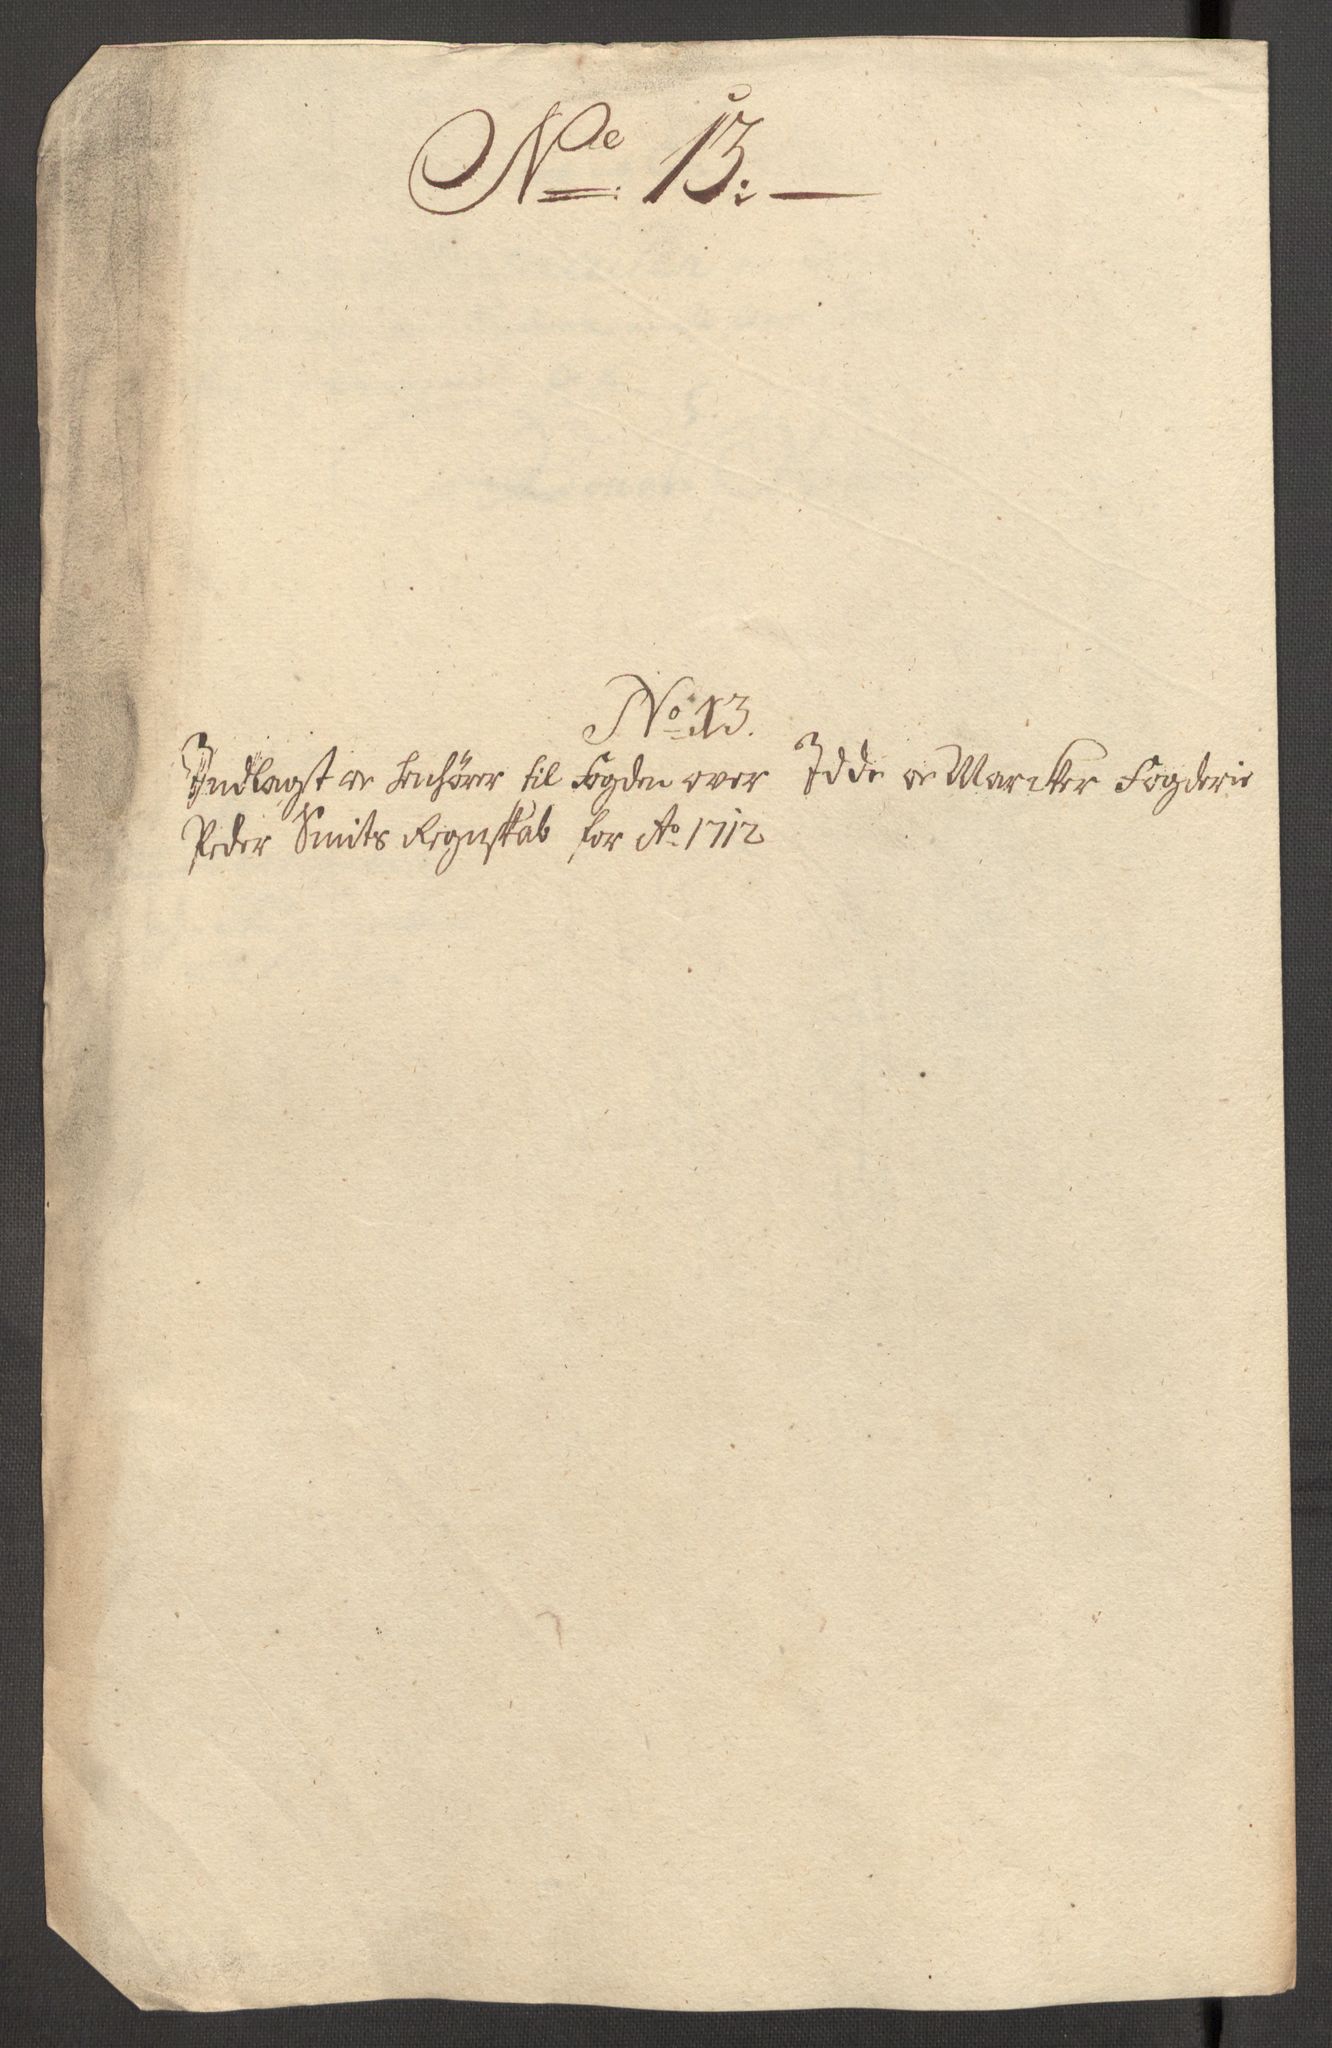 No 13:
No 13.
Indlagt oc henhører til Fogden over Idde oc Marcker Fogderie
Peder Smits Regnskab for Ao 1712